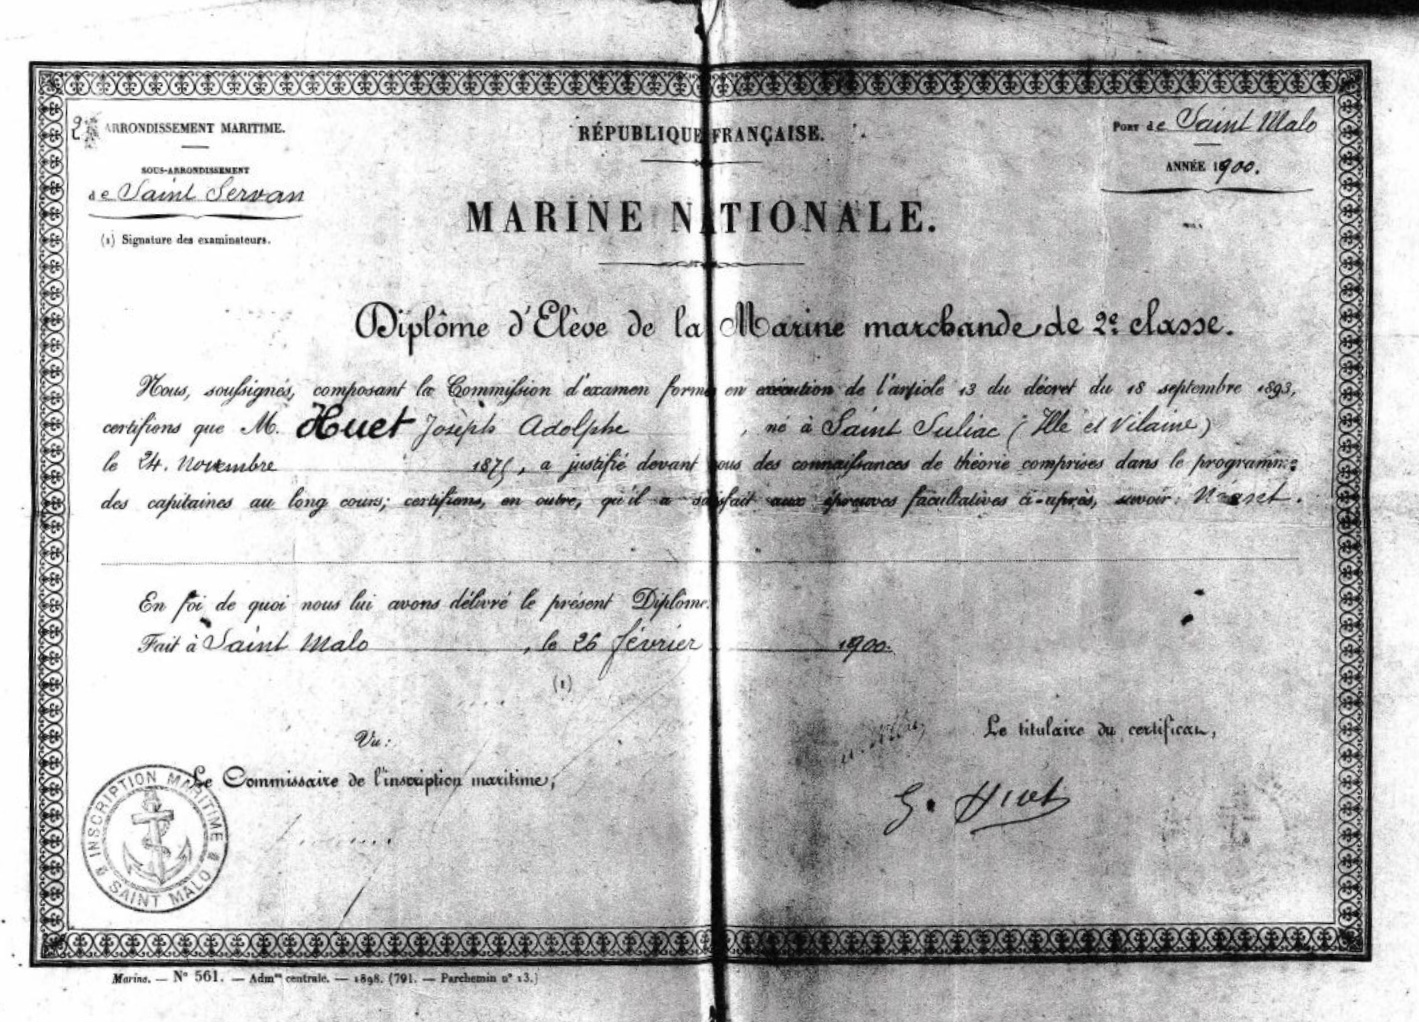 2e ARRONDISSEMENT MARITIME.
SOUS-ARRONDISSEMENT
de Saint Servan
(1) Signature des examinateurs.
RÉPUBLIQUE FRANÇAISE.
Port de Saint Malo
ANNÉE 1900.
MARINE NATIONALE.
Diplôme d'Elève de la Marine marchande de 2e classe.
Nous, soussignés, composant la Commission d'examen formée en exécution de l'article 13 du décret du 18 septembre 1893,
certifions que M. Huet Joseph Adolphe, né à Saint Suliac (Ille et Vilaine)
le 24 Novembre 1875, a justifié devant nous des connaissances de théorie comprises dans le programme
des capitaines au long cours; certifions, en outre, qu'il a satisfait aux épreuves facultatives ci-après, savoir: Néant.
En foi de quoi nous lui avons délivré le présent Diplôme.
Fait à Saint Malo, le 26 février 1900.
(1)
Vu:
Le Commissaire de l'inscription maritime,
Le titulaire du certificat,
J. Huet
INSCRIPTION MARITIME
SAINT MALO
Marine. — N° 561. — Admon centrale. — 1898. (791. — Parchemin n° 13.)